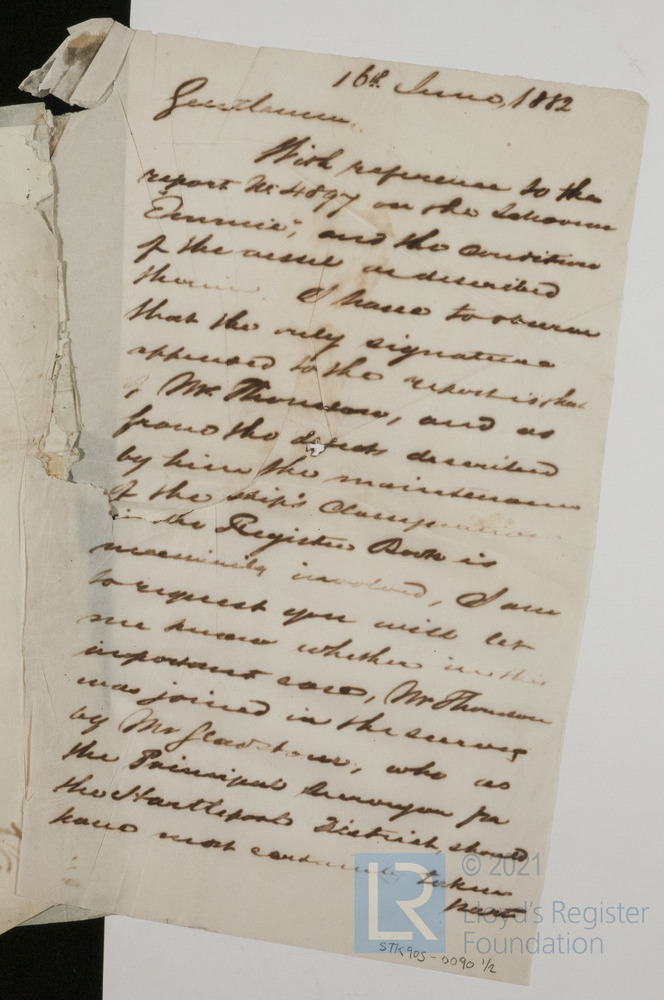 16th June, 1882
Gentlemen,
With reference to the
report No. 4897 on the Schooner
"Emmie", and the condition
of the vessel as described
therein. I have to observe
that the only signature
appended to the report is that
of Mr. Thomson, and as
from the defects described
by him the maintenance
of the ship's
in the Register Book is
involved, I am
to request you will let
me know whether in this
important case, Mr Thomson
was joined in the survey
by Mr Gladstone, who as
the Principal Surveyor for
the Hartlepool District, should
have most certainly taken
part
© 2021
LR
Lloyd's Register
Foundation
STK905-0090 1/2